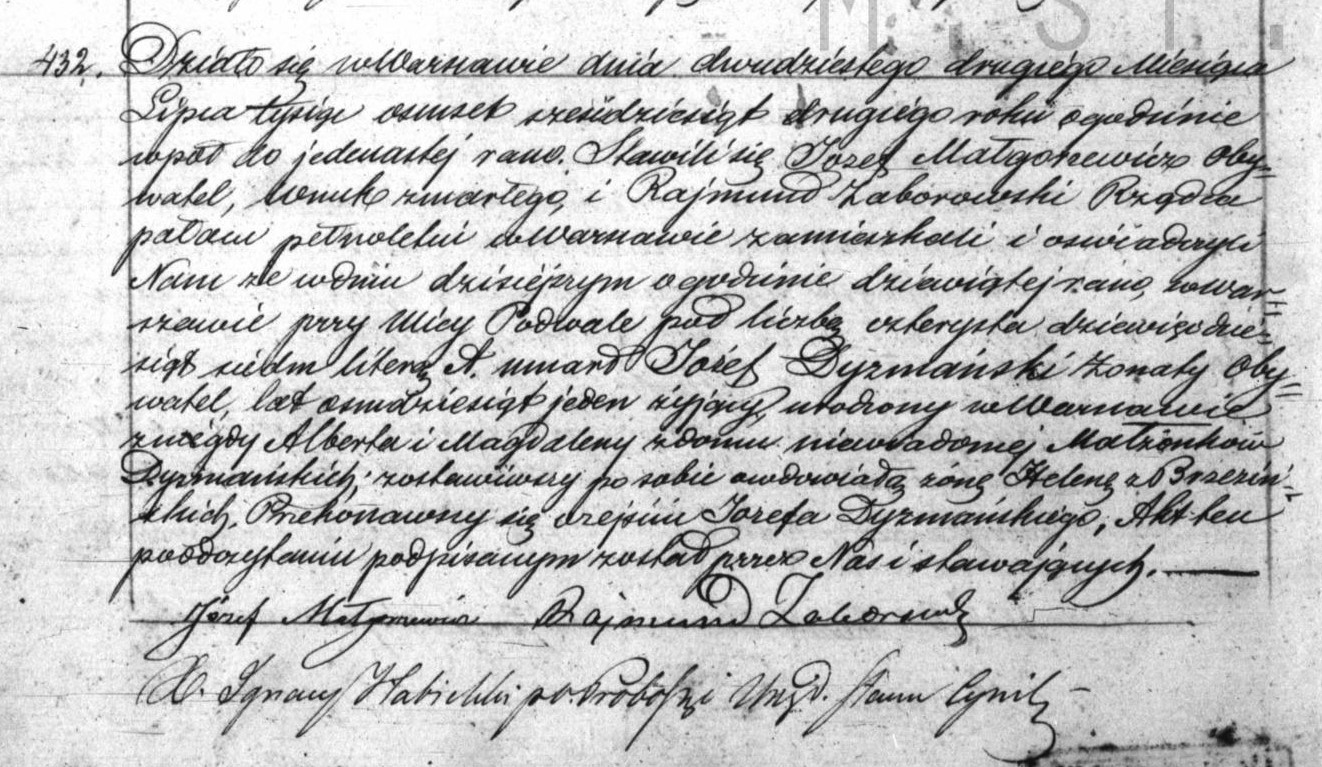 M. S T.
432. Działo się w Warszawie dnia dwudziestego drugiego Miesiąca
Lipca tysiąc osmset sześćdziesiąt drugiego roku o godzinie
wpół do jedenastej rano. Stawili się Jozef Małgorzewicz Oby=
watel, wnuk zmarłego, i Rajmund Zaborowski Rządca
pałacu pełnoletni w Warszawie zamieszkali i oswiadczyli
Nam ze w dniu dzisiéjszym o godzinie dziewiątej rano, w War=
szawie przy Ulicy Podwale pod liczbą czterysta dziewięćdzie=
siąt siedm literą A. umarł Józef Dyzmański żonaty Oby=
watel, lat osmdziesiąt jeden żyjący, urodzony w Warszawie
z niegdy Alberta i Magdaleny z domu niewiadomej Małżonków
Dyzmańskich; zostawiwszy po sobie owdowiałą żonę Helenę z Brzeziń=
skich. Przekonawszy się o zejściu Jozefa Dyzmańskiego, Akt ten
po odczytaniu podpisanym został przez Nas i stawających.
Józef Małgorzewicz Rajmund Zaborowski
X. Ignacy po. Proboszcz i Urzęd. Stanu Cywil